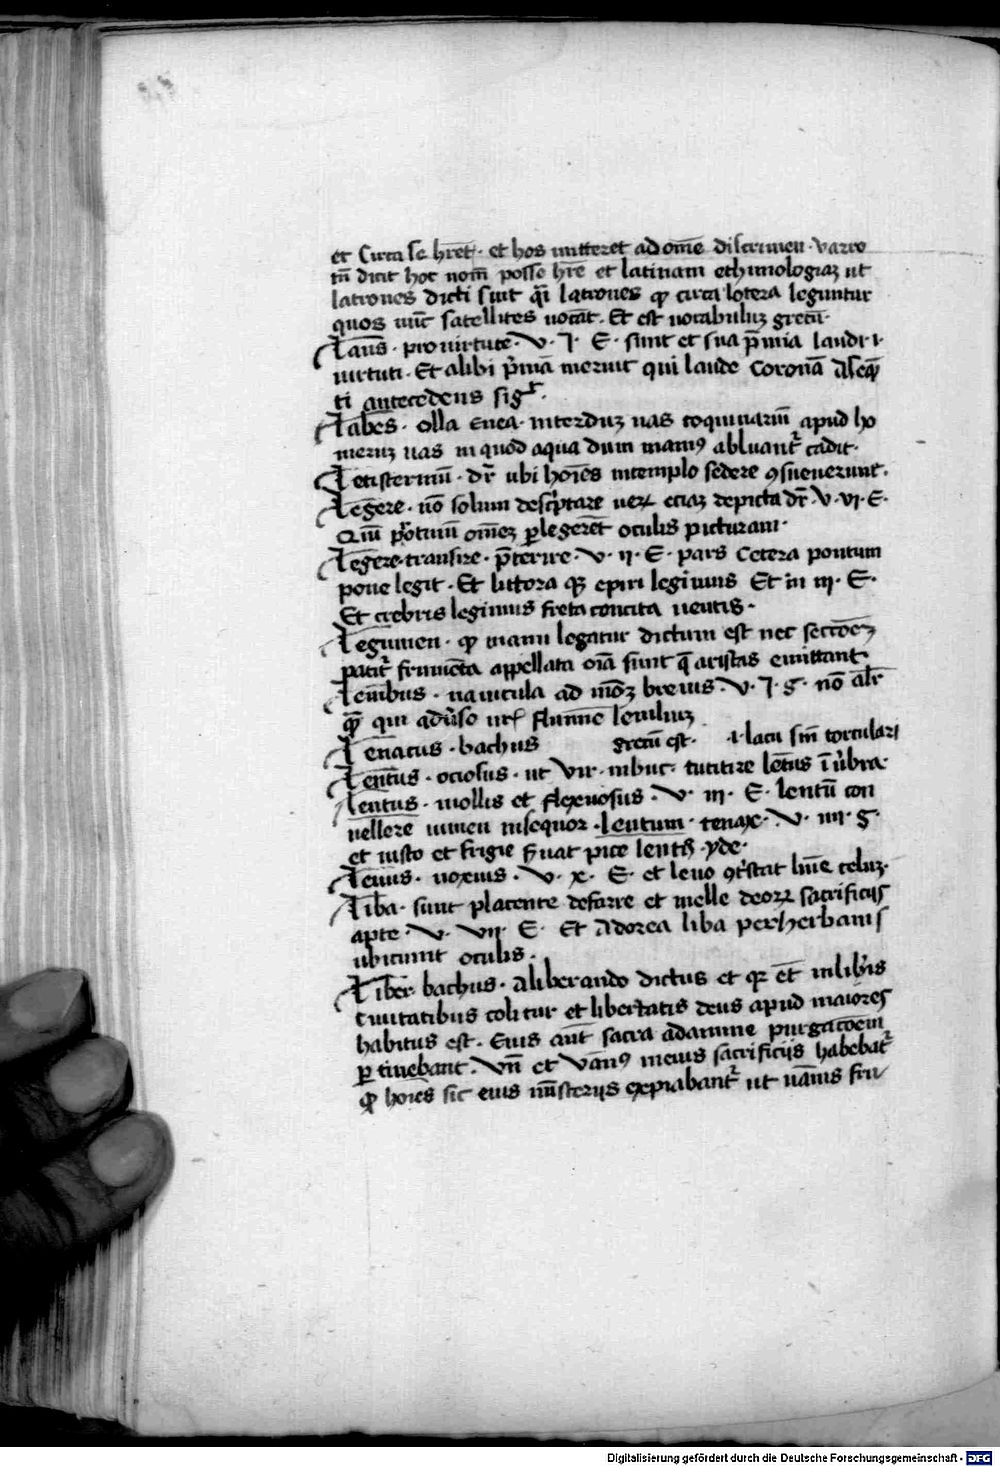 et Circa se hr̄et · et hos mitteret ad om̄e discrimen · varro
tn̄ dicit hoc nom̄ posse hr̄e et latinam ethimologiaꝫ ut
latrones dicti sūt q̄i latrones ꝙ circa lateꝛa leguntur
quos nūc satellites uocāt · Et est uocabuluꝫ grecū ·
Laus · pro uirtute · V · I · E · sunt et sua p̄mia laudi · i ·
uirtuti · Et alibi p̄miā meruit qui laude Coronā
ti antecedens sigᵗ ·
Labes · olla enea · interduꝫ uas coquinariū apud ho
meruꝫ uas in quod aqua dum manꝰ abluant᷑ cadit ·
Letisterniū · dr̄ ubi hoīes intemplo sedere ꝯsueuerunt ·
Legere · nō solum ueꝝ eciaꝫ depicta dr̄ · V · VI · E ·
om̄eꝫ ꝑlegerēt oculis picturam ·
Legere · transire · p̄terire · V · II · E · pars Cetera pontum
pone legit · Et littora qꝫ epiri legimus Et in III · E ·
Et crebris legimus freta concita uentis ·
Legumen · ꝙ manu legatur dictum est nec seccōeꝫ
patit᷑ frumēta appellata oīa sunt q̄ aristas emittant ·
Lembus · nauicula ad modꝫ breuis · V · I · G · nō alr̄
qᷓꝫ qui adūso uix flumine lembuꝫ
Lenatus · bachus grecū est · · i · lacu siue torculari
Lentus · ociosus · ut Vir · in buc · tu titire lētus ī ūbra ·
Lentus · mollis et flexuosus · V · III · E · lentū con
uellere uimen insequor · Lentum · tenax · V · IIII · G ·
et uisco et frigie s̄uat pice lentꝰ · yde ·
Leuus · noxius · V · X · E · et leuo ꝯt᷑stat līne celuꝫ ·
Liba · sunt placente defarre et melle deoꝝ sacrificijs
apte · V · VII · E · Et Adorea liba per herbam s
ubiciunt oculis ·
Liber · bachus · aliberando dictus et qꝛ ēt in liberis
ciuitatibus colitur et libertatis deus apud maiores
habitus est · Eius aūt sacra adanime purgacōem
ꝑtinebant · Vn̄ et Vānꝰ in eius sacrificijs habebat᷑
ꝙ hoīes sic eius mīsterijs expiabant᷑ ut uānis fru
Digitalisierung gefördert durch die Deutsche Forschungsgemeinschaft - DFG